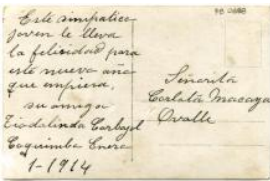 Este simpatico
joven le lleva
la felicidad para
este nuevo año
que empieza,
su amiga
Tiodalinda Carbajal
Coquimbo Enero
1-1914
Señorita
Carlota Macaya
Ovalle